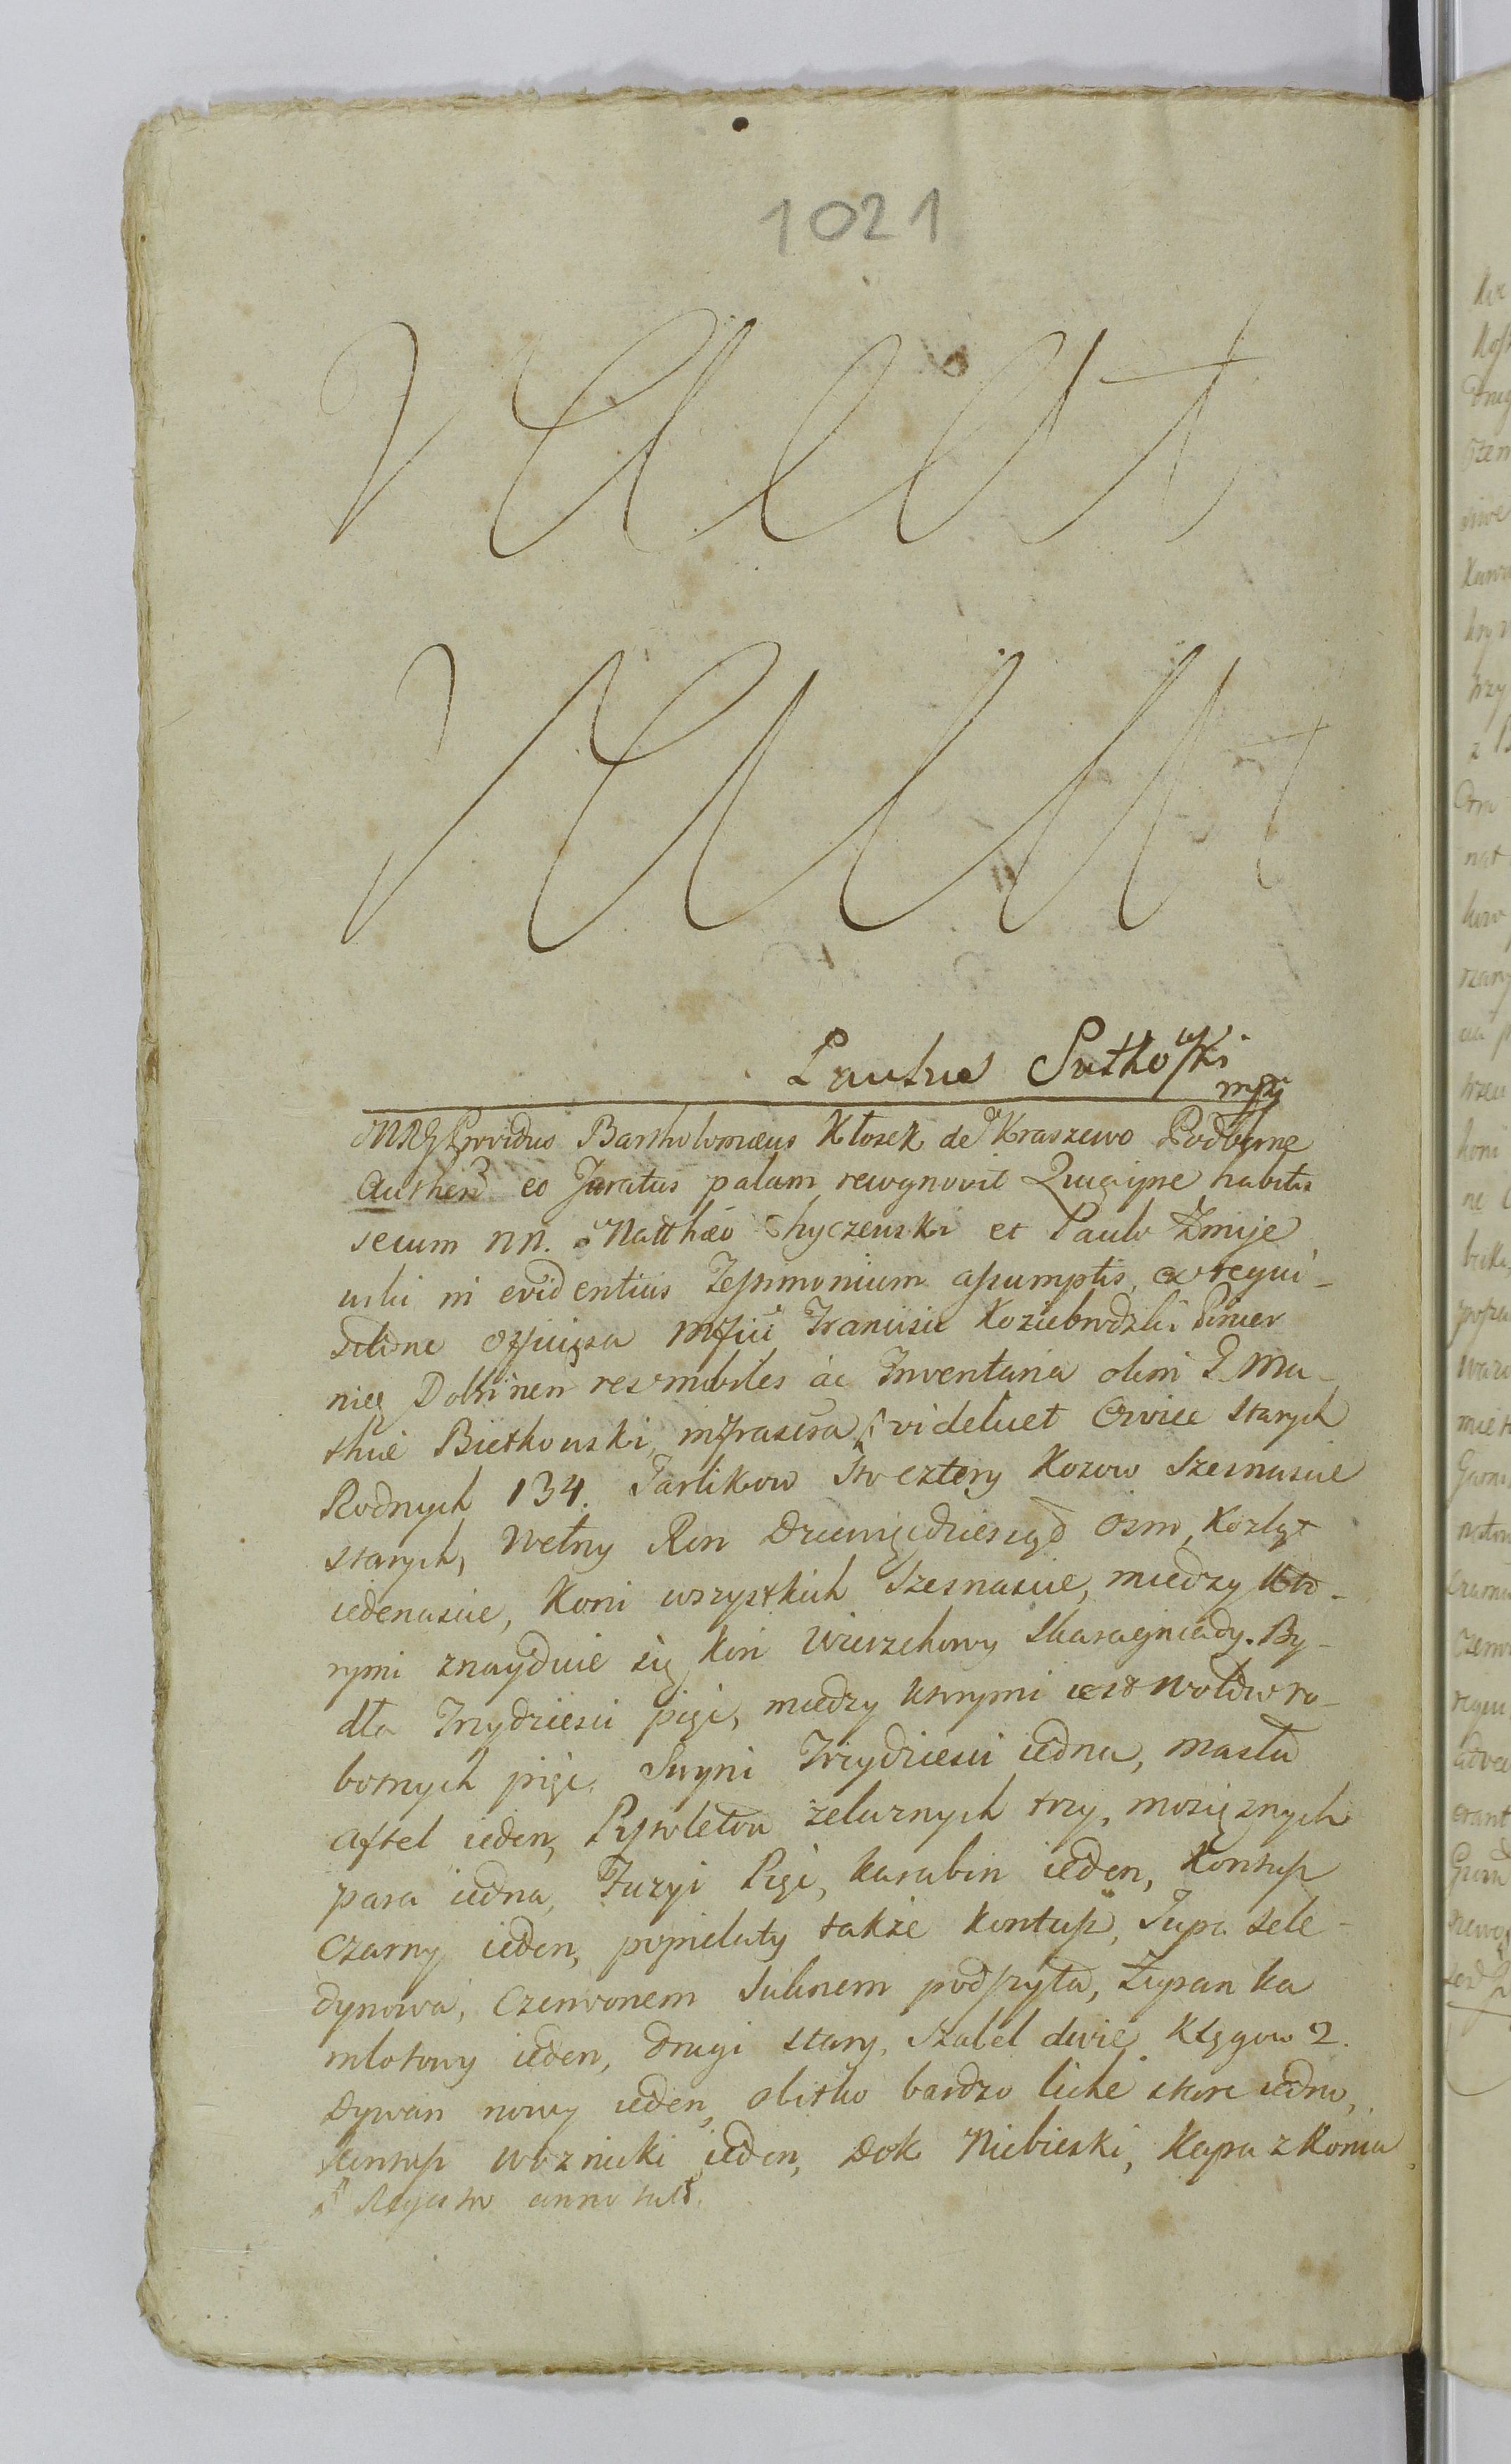 1021
vacat
vacat
Paulus Sutkowski
mpp
MRG Providus Bartholomæus Kłosek de Kraszewo Podborne
Authen eo Juratus palam recognovit Quia ipse habitis
secum NN. Matthæo Chyczewski et Paulo Zmije
wski in evidentius Testimonium assumptis, ad requi-
sitione Officiosa Mfici Francisci Koziebrodzki
nieg Dobrinen res mobiles ac Inventaria olim G. Ma-
thiæ Bietkowski, infrascra videlicet Owiec starych
Rodnych 134. Jarlikow sto cztery Kozow szesnascie
starych, Wełny Run Dziewięcdziesiąd osm, Kozląt
iedenascie, Koni wszystkich szesnascie, między kto-
rymi znayduie się koń Wierzchowy skarogniady. By-
dła Trzydziesci pięć, między ktorymi iest wołow ro-
botnych pięć, Swyni Trzydziesci iedna, masła
Aftel ieden, Pystoletow zelaznych trzy, mosięznych
para iedna, Fuzyi Pięć, karabin ieden, Kontusz
Czarny ieden, popielaty takze kontusz, Jupa sele-
dynowa, Czerwonem suknem podszyta, Zupan ka
mlotowy ieden, drugi stary. Szabel dwie Kięgow 2.
Dywan nowy ieden, obitko bardzo liche stare iedno,
kontusz woznicki ieden, Dek Niebieski, Kapa z Konia
Regestro annotat.